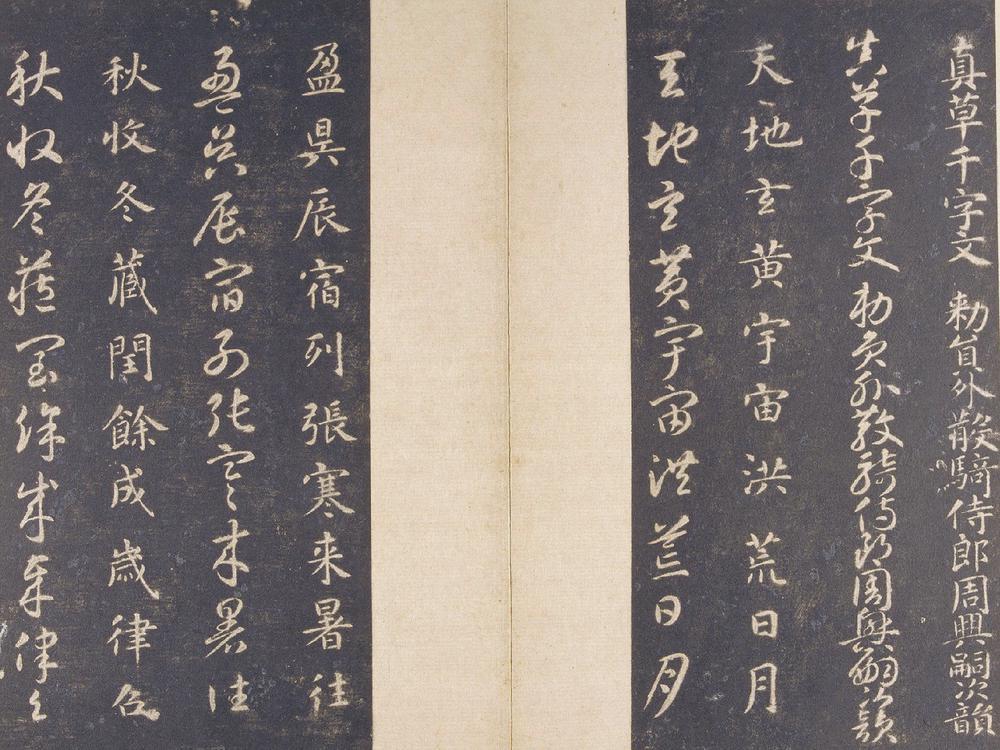 真草千字文 勑員外散騎侍郎周興嗣次韻
真草千字文 勑員外散騎侍郎周興嗣次韻
天地玄黄宇宙洪荒日月
天地玄黄宇宙洪荒日月
盈昃辰宿列張寒来暑往
盈昃辰宿列張寒来暑往
秋收冬藏閏餘成歲律吕
秋收冬藏閏餘成歲律吕